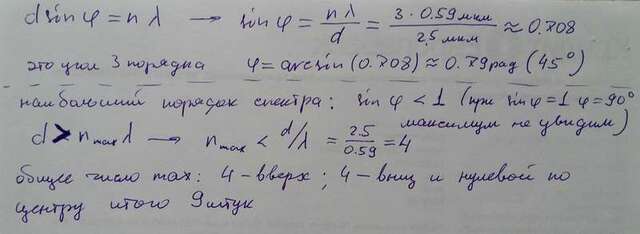 d sin φ = n λ → sin φ = nλ/d = 3 · 0.59 мкм / 2,5 мкм ≈ 0.708
это угол 3 порядка φ = arcsin(0.708) ≈ 0.79 рад (45°)
наибольший порядок спектра: sin φ < 1 (при sin φ = 1 φ = 90° максимум не увидим)
d > n max λ → n max < d/λ = 2.5/0.59 = 4
общее число max: 4 - вверх ; 4 - вниз и нулевой по
центру итого 9 штук